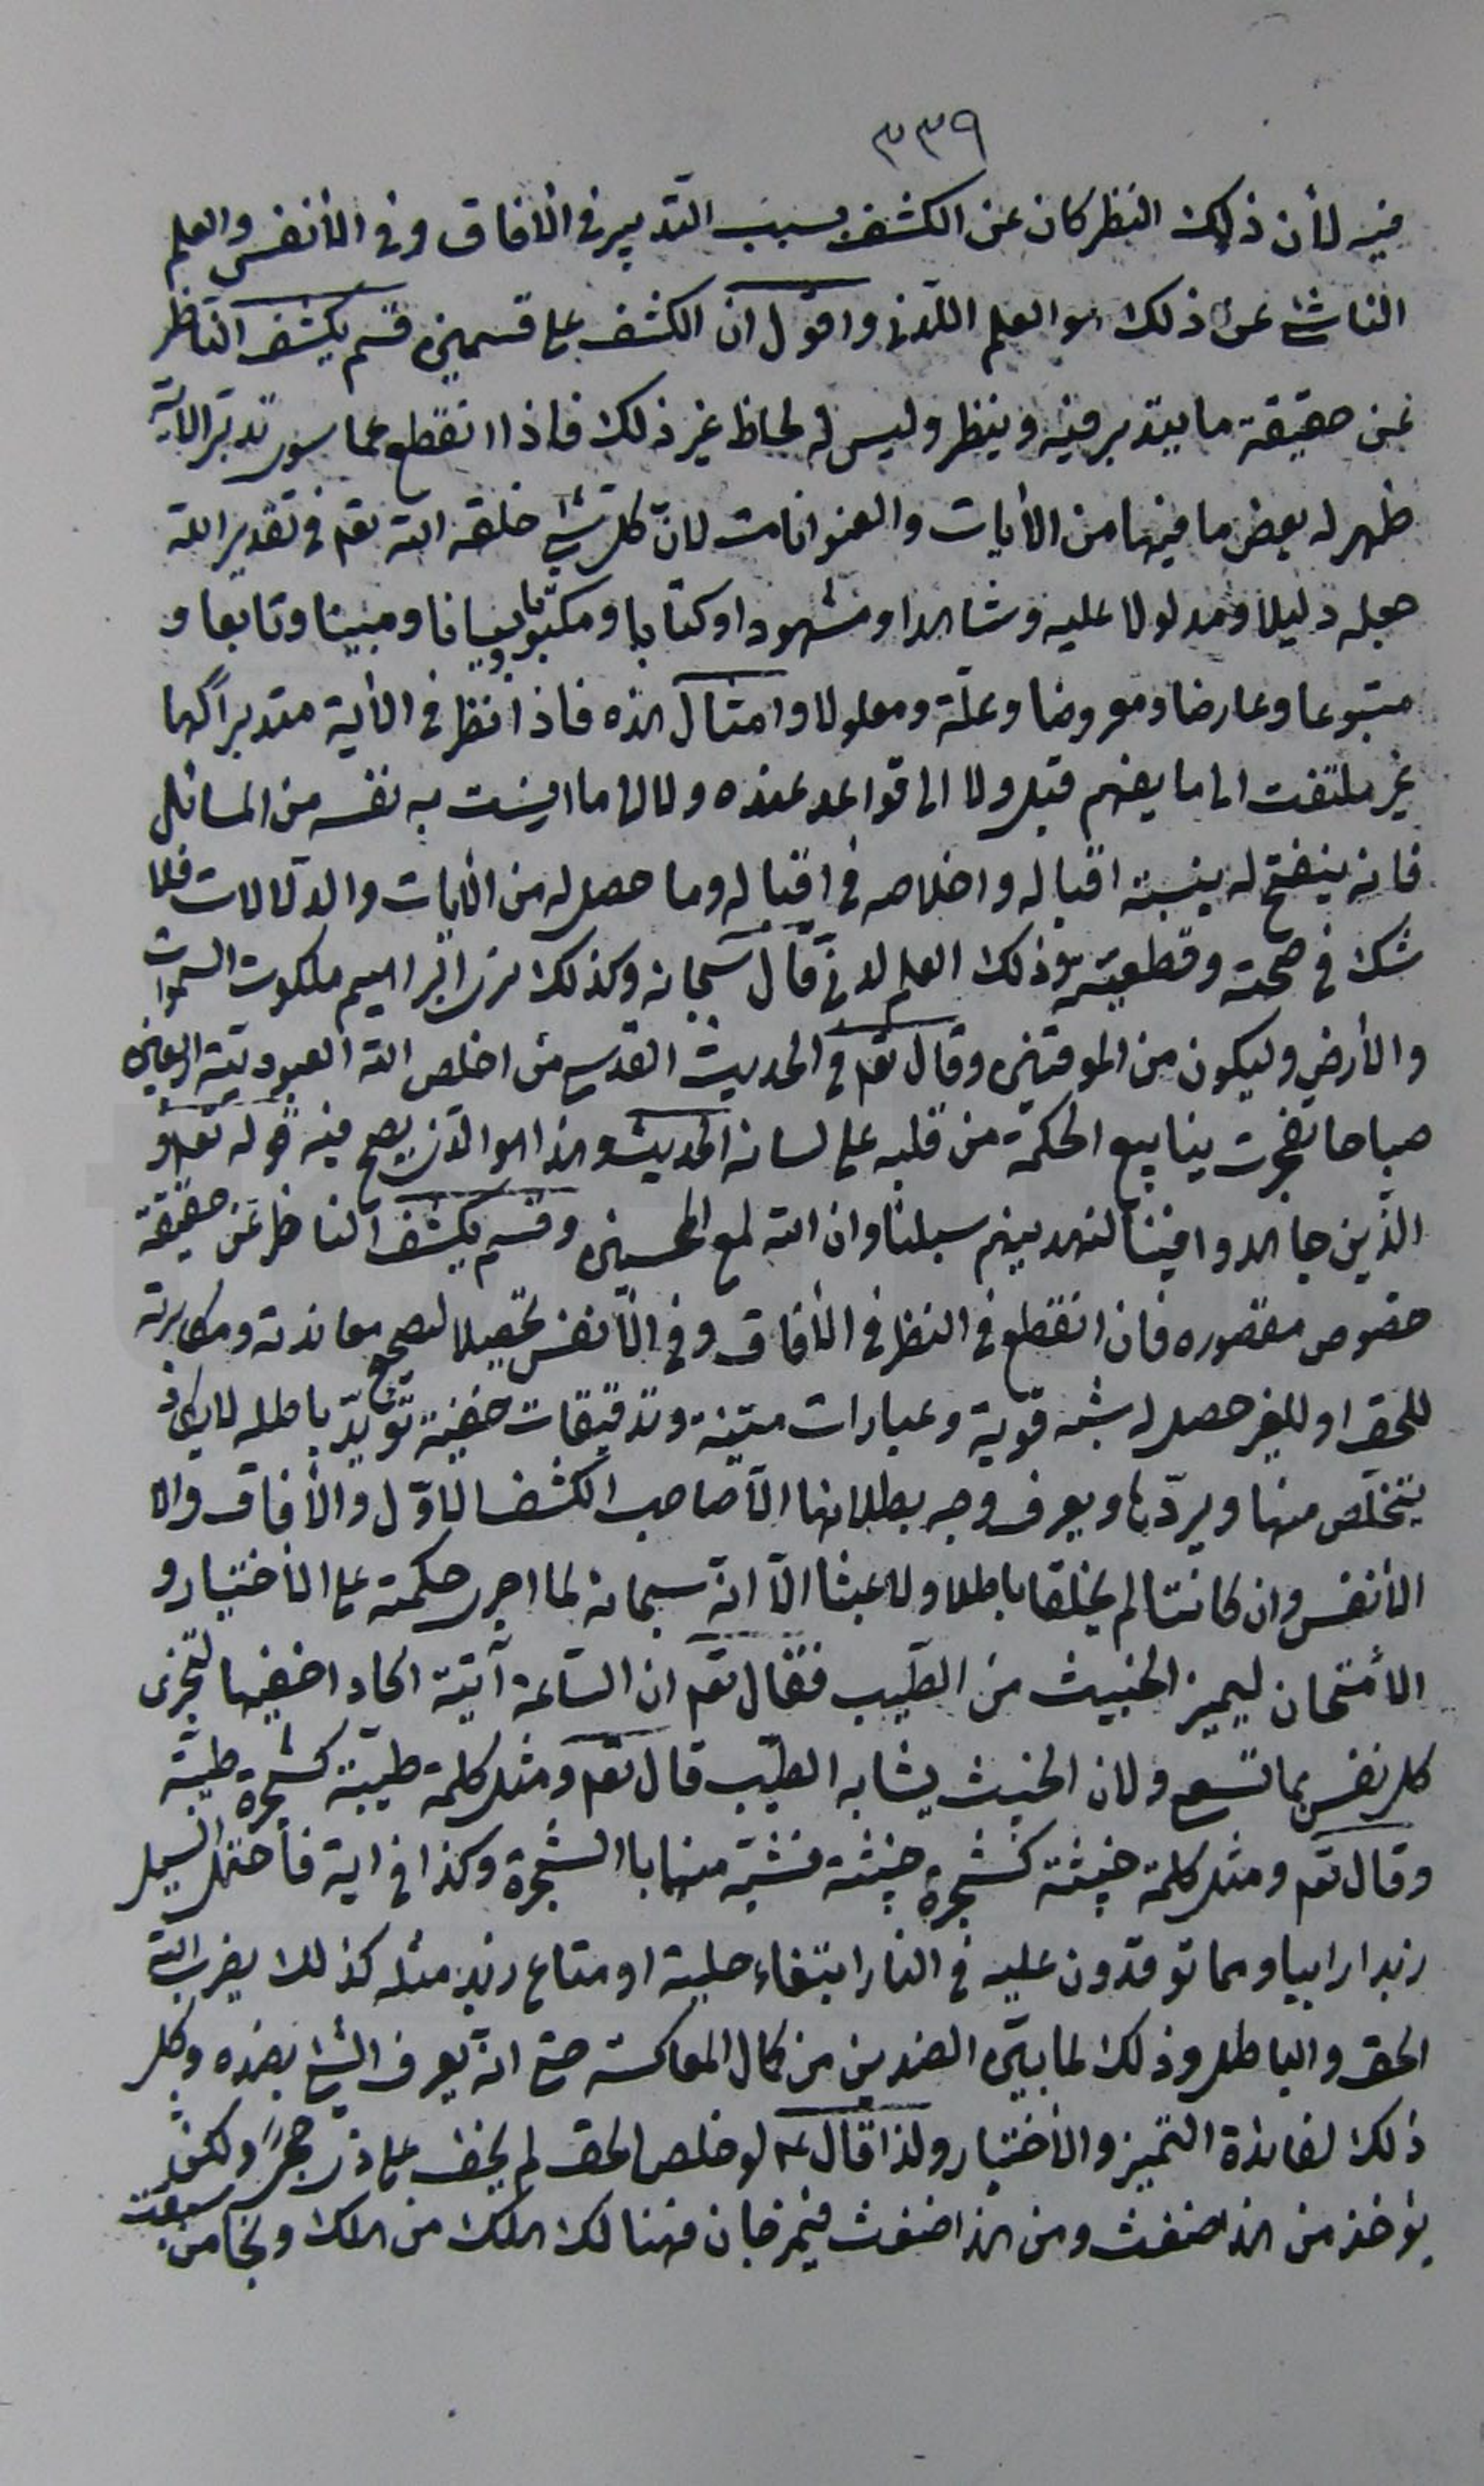 ٣٣٩
فيه لأن ذلك النظر كان عن الكشف بسبب التدبير في الافاق وفي الأنفس والعلم
الناشئ عن ذلك هو العلم اللدني واقول ان الكشف على قسمين قسم يكشف الناظر
عن حقيقة ما يتدبر فيه وينظر وليس له لحاظ غير ذلك فاذا انقطع عما سوى تدبر الآية
ظهر له بعض ما فيها من الأيات والعنوانات لانّ كل شئ خلقه الله تعه في تقدير الله
جعله دليلا ومدلولا عليه وشاهدا ومشهودا وكتابا ومكتوبا وبيانا ومبينا وتابعا و
متبوعا وعارضا ومعروضا وعلّة ومعلولا وامثال هذه فاذا نظر في الأية متدبراً لها
غير ملتفت الى ما يفهم قبل ولا الى قواعد عنده ولا الى ما انست به نفسه من المسائل
فانه ينفتح له بنسبة اقباله واخلاصه في اقباله وما حصل له من الايات والدلالات فلا
شك في صحته وقطعيته وذلك العلم لدني قال سبحانه وكذلك نرى ابراهيم ملكوت السموات
والأرض وليكون من الموقنين وقال تعه في الحديث القدسي من اخلص لله العبودية اربعين
صباحا تفجرت ينابيع الحكمة من قلبه على لسانه الحديث وهذا هو الذى يصح فيه قوله تعه و
الذّين جاهدوا فينا لنهدينهم سبلنا وان الله لمع المحسنين وقسم يكشف الناظر عن حقيقة
خصوص مقصوره فان انقطع في النظر في الأفاق وفي الأنفس تحصيلا لتصحيح معاندته ومكابرته
للحق او للغير حصل له شبه قوية وعبارات متينة وتدقيقات خفية تؤيّد باطله لا يكاد
يتخلّص منها ويردّها ويعرف وجه بطلانها الّا صاحب الكشف الاوّل والأفاق والا
الأنفس وان كانتا لم يخلقا باطلا ولا عبثا الّا انّه سبحانه لما اجرى حكمته على الأختيار و
الأمتحان ليميز الخبيث من الطيب فقال تعه ان السّاعة آتية اكاد اخفيها لتجزى
كل نفس بما تسعى ولان الخبيث يشابه الطيّب قال تعه ومثل كلمة طيّبة كشجرة طيبّة
وقال تعه ومثل كلمة خبيثة كشجرة خبيثة فشبّه منهابا الشجرة وكذا في اية فأحتمل السيل
زبدا رابيا ومما توقدون عليه في النار ابتغاء حلية او متاع زبد مثله كذلك يضرب الله
الحق والباطل وذلك لما بين الضدين من كمال المعاكسة حتى انّه يعرف الشئ بضده وكل
ذلك لفائدة التميز والأختيار ولذا قال عه لو خلص الحق لم يخف على ذى حجىً ولكن
يؤخذ من هذا ضغث ومن هذا ضغث فيمزجان فهنالك هلك من هلك ونجا من سبقت